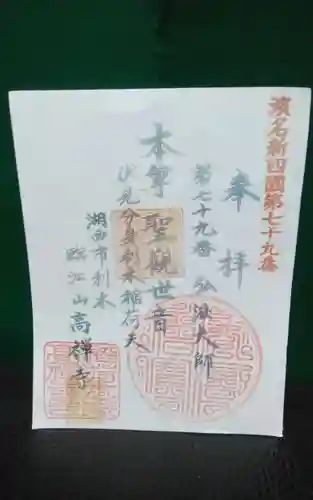 濱名新四國第七十九番
奉拝
第七十九番 弘法大師
本尊 聖觀世音
伏見分身利木稲荷大
湖西市利木
臨江山 高禅寺